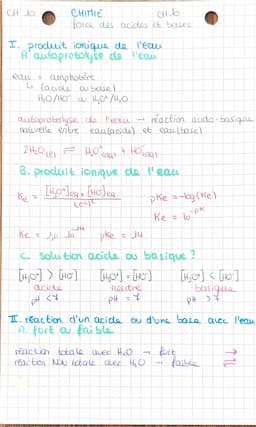 CH 10 CHIMIE CH.10
force des acides et bases
I. produit ionique de l'eau
A autoprotolyse de l'eau
eau = amphotère
↳ (acide ou base)
H₂O/HO⁻ ou H₃O⁺/H₂O
autoprotolyse de l'eau → réaction acido-basique
naturelle entre eau(acide) et eau(base)
2H₂O(l) ⇌ H₃O⁺(aq) + HO⁻(aq)
B. produit ionique de l'eau
Ke = [H₃O⁺]éq × [HO⁻]éq / (c°)² pKe = -log(Ke)
Ke = 10^-pK
Ke = 1,0 · 10^-14 pKe = 14
C. solution acide ou basique?
[H₃O⁺] > [HO⁻] [H₃O⁺] = [HO⁻] [H₃O⁺] < [HO⁻]
acide neutre basique
pH < 7 pH = 7 pH > 7
II. réaction d'un acide ou d'une base avec l'eau
A. fort ou faible
réaction totale avec H₂O → fort →
réaction NON totale avec H₂O → faible ⇌